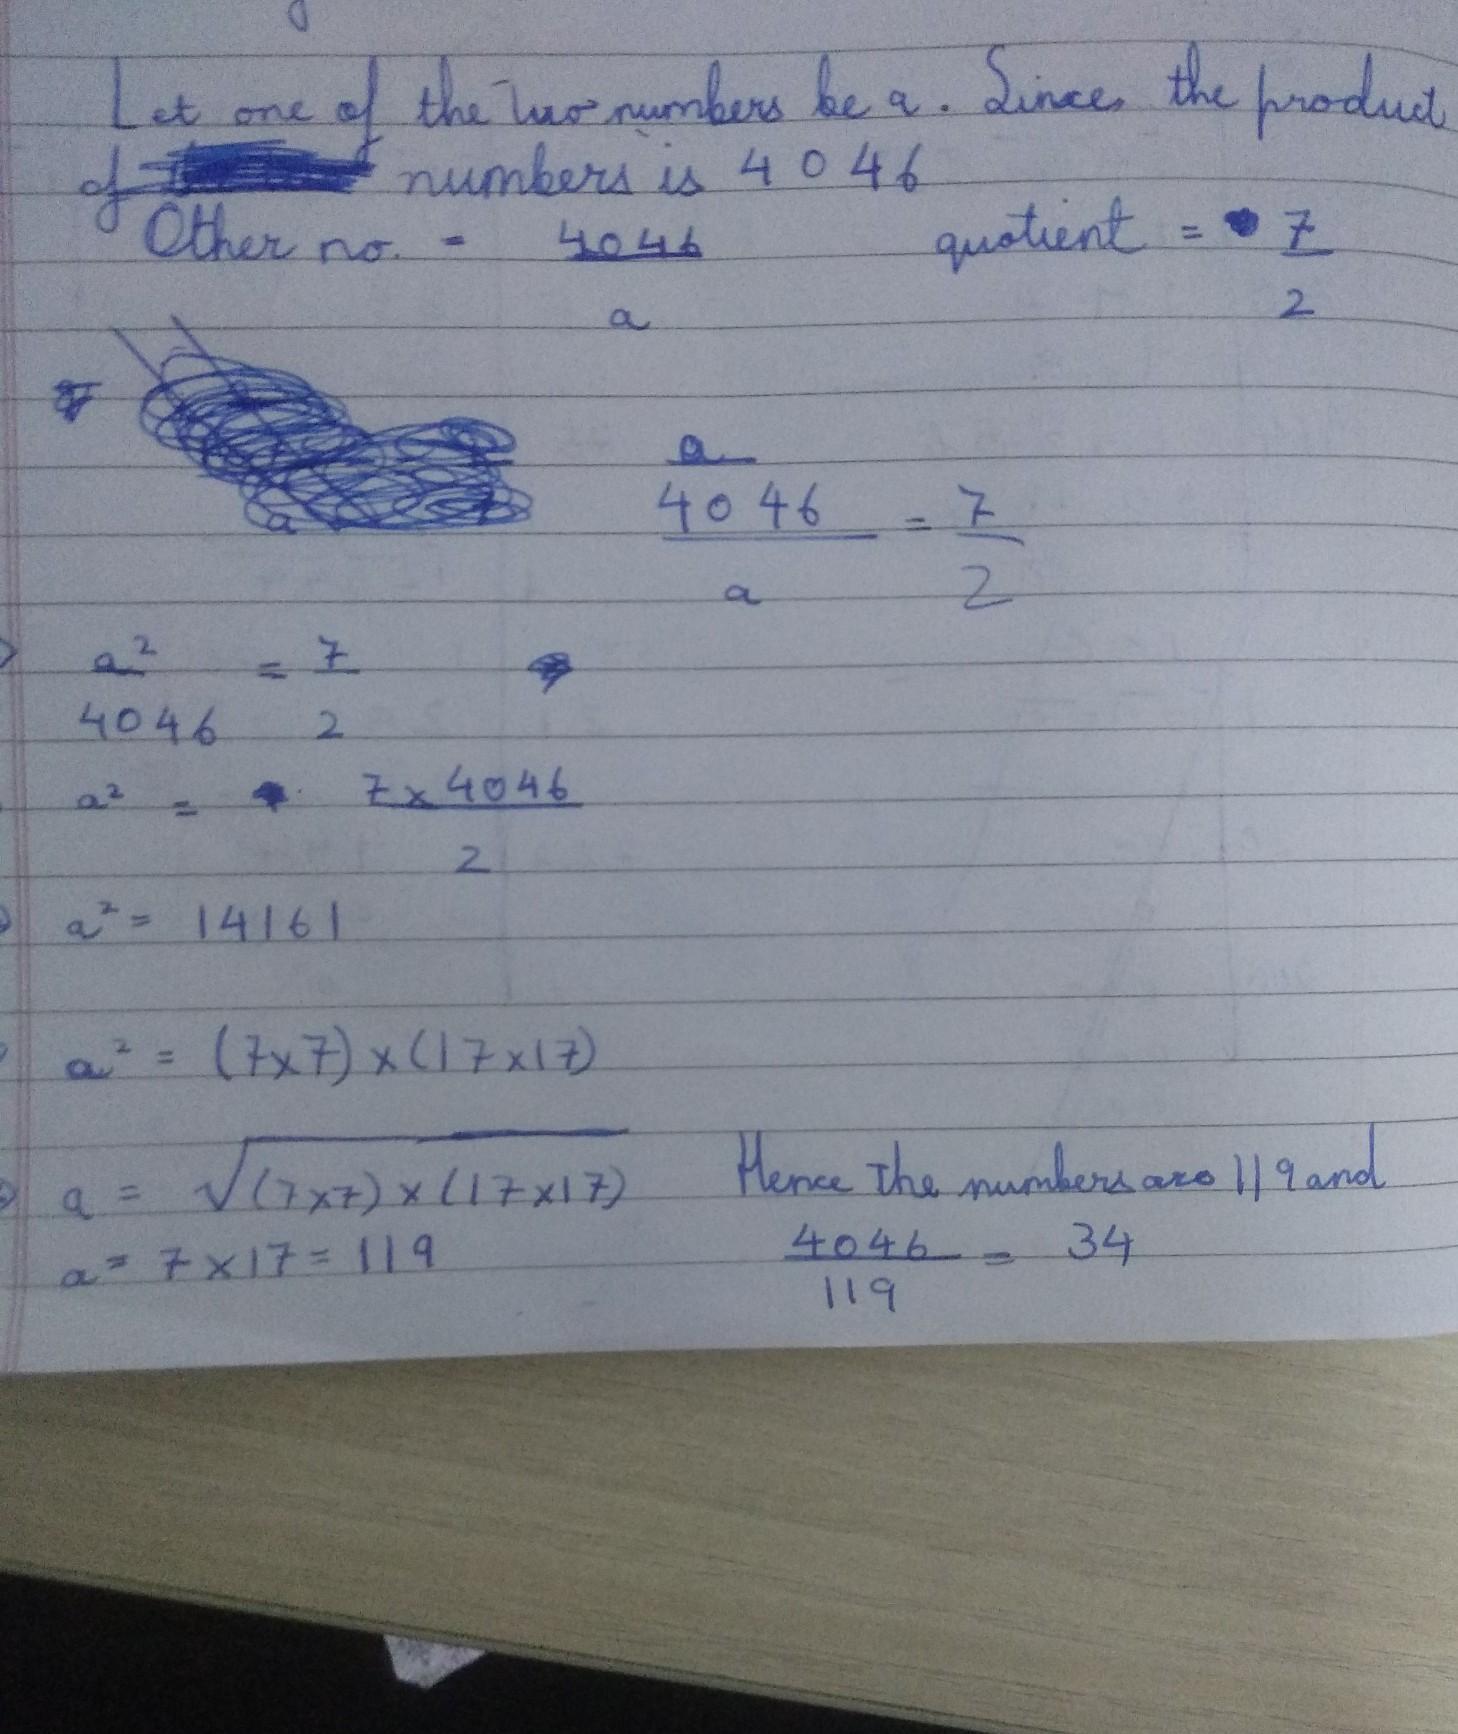 Let one of the two numbers be a. Since, the product
of numbers is 4046
Other no. = 4046/a quotient = 7/2
a/(4046/a) = 7/2
a²/4046 = 7/2
a² = 7 x 4046/2
a² = 14161
a² = (7x7) x (17x17)
a = √(7x7) x (17x17) Hence the numbers are 119 and
a = 7 x 17 = 119 4046/119 = 34